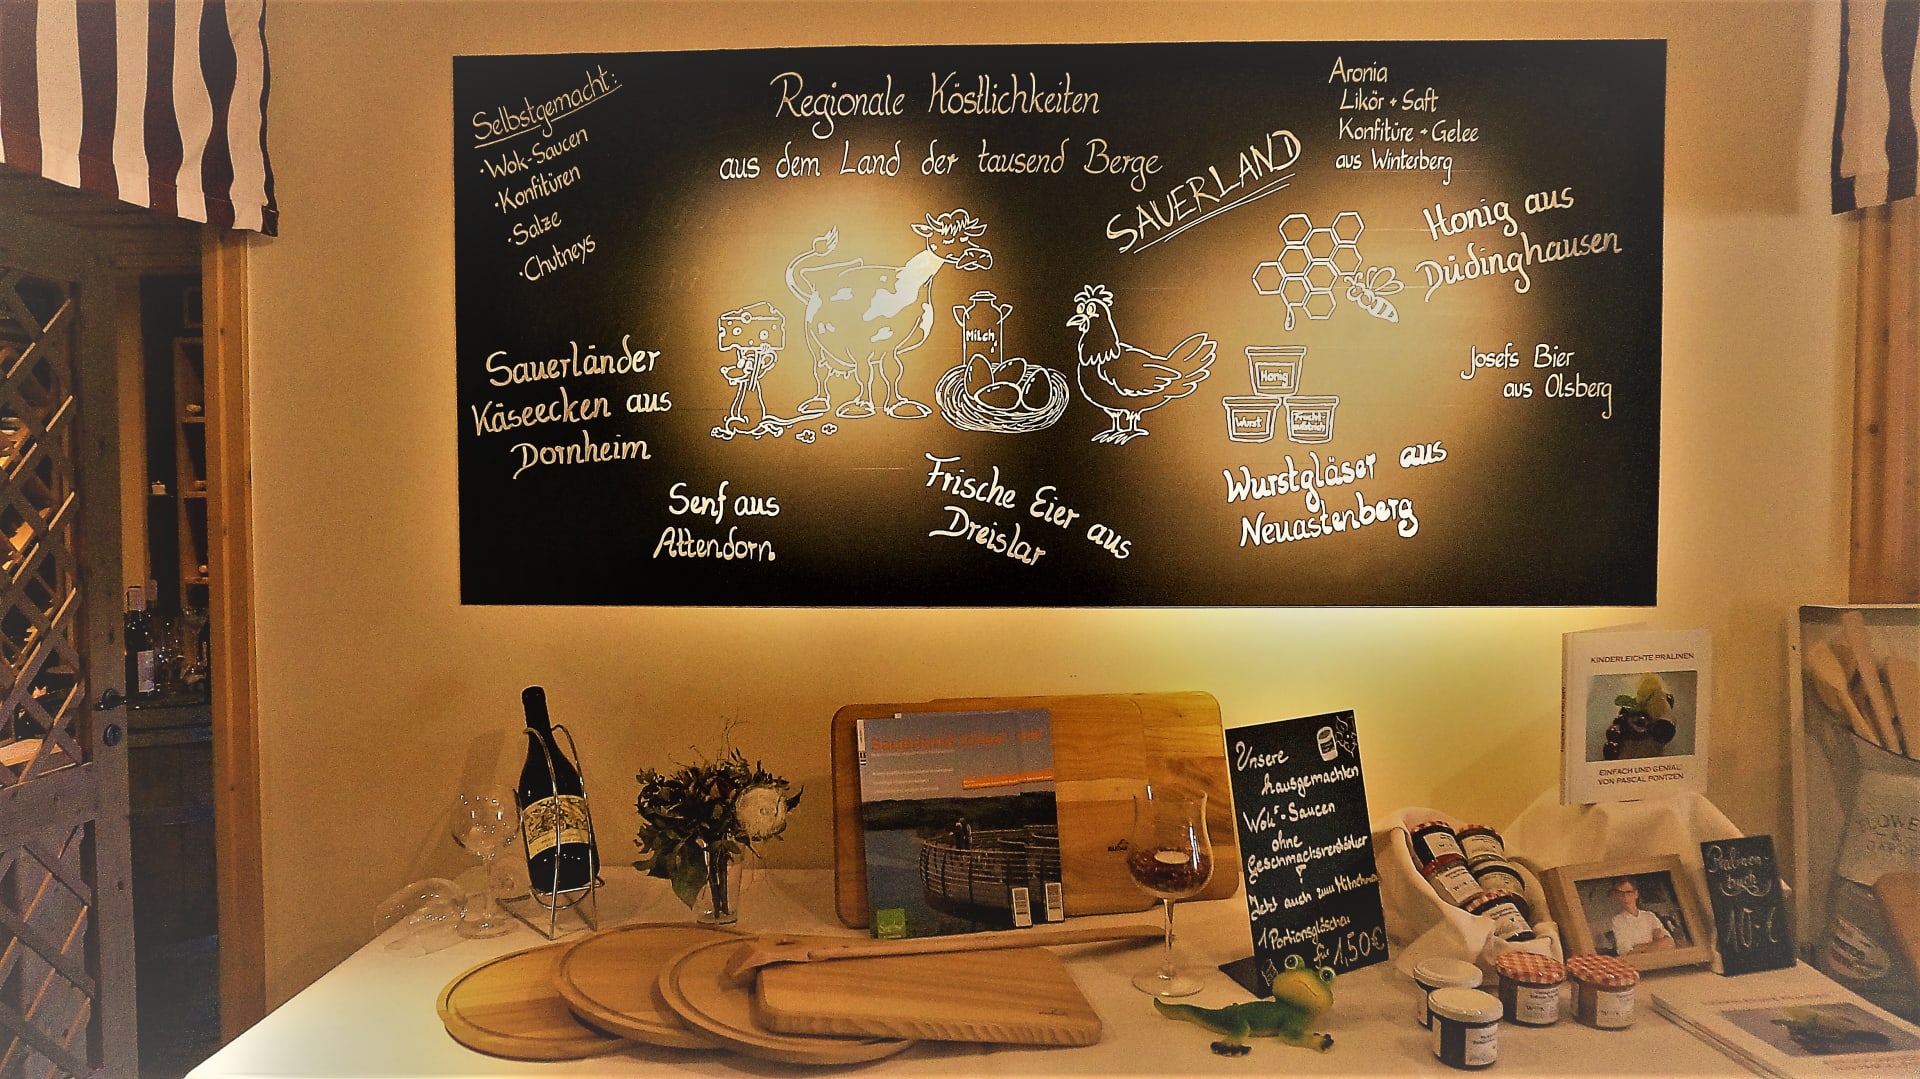 Selbstgemacht:
·Wok-Saucen
·Konfitüren
·Salze
·Chutneys
Regionale Köstlichkeiten
aus dem Land der tausend Berge
SAUERLAND
Aronia
Likör + Saft
Konfitüre + Gelee
aus Winterberg
Honig aus
Düdinghausen
Josefs Bier
aus Olsberg
Sauerländer
Käseecken aus
Dornheim
Senf aus
Attendorn
Milch
Frische Eier aus
Dreislar
Honig
Wurst
Wurstgläser aus
Neuastenberg
Unsere
hausgemachten
Wok-Saucen
ohne
Geschmacksverstärker
Jetzt auch zum
1 Portionsgläschen
für 1,50€
KINDERLEICHTE PRALINEN
EINFACH UND GENIAL
VON PASCAL PONTZEN
Pralinen-
buch
10.-€